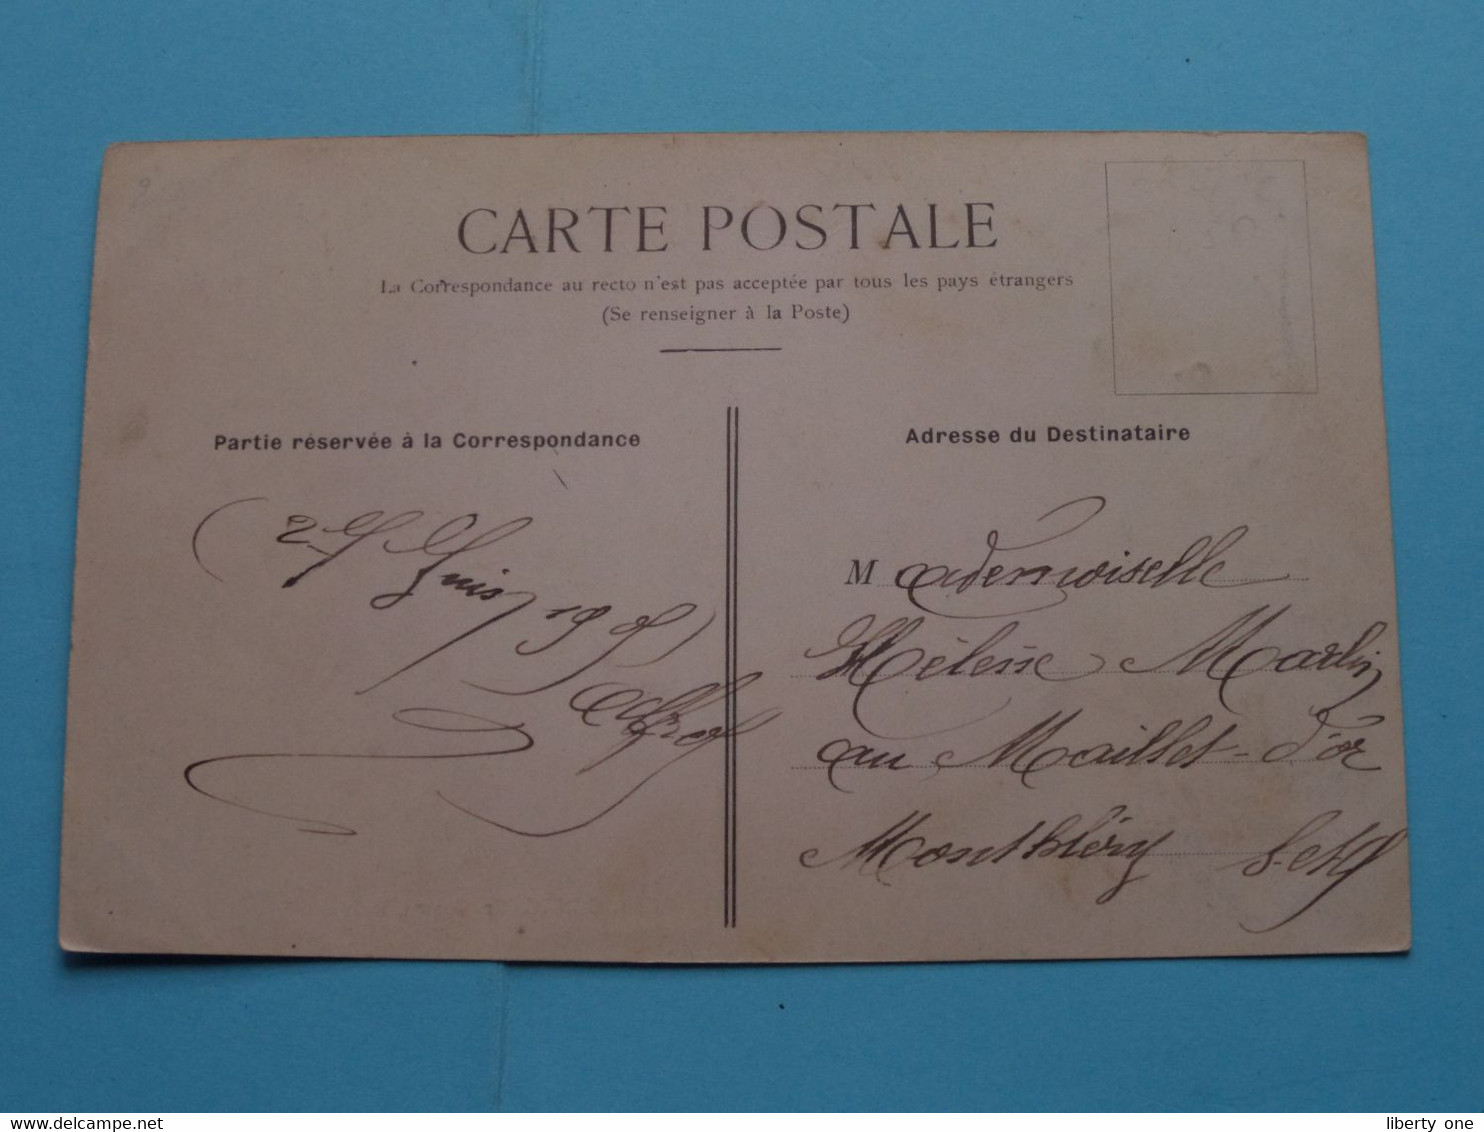 CARTE POSTALE
La Correspondance au recto n'est pas acceptée par tous les pays étrangers
(Se renseigner à la Poste)
Partie réservée à la Correspondance
Juin 1905
Alfred
Adresse du Destinataire
Mademoiselle
Marlin
au Maillet-d'or
Montbléry S-et-O
www.delcampe.net
liberty one